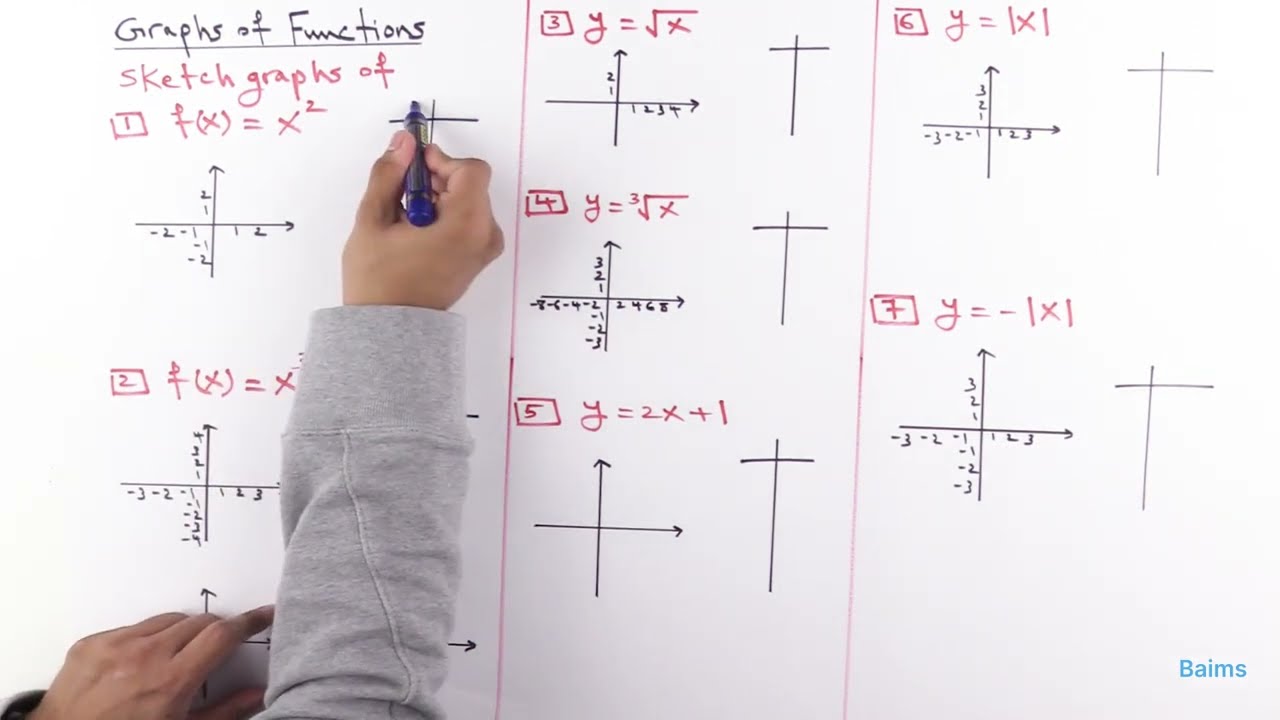 Graphs of Functions
Sketch graphs of
1 f(x) = x²
2
1
-2 -1 1 2
-1
-2
2 f(x) = x³
4
3
2
1
-3 -2 -1 1 2 3
-1
-2
-3
-4
3 y = √x
2
1
1 2 3 4
4 y = ³√x
3
2
1
-8 -6 -4 -2 2 4 6 8
-1
-2
-3
5 y = 2x + 1
6 y = |x|
3
2
1
-3 -2 -1 1 2 3
7 y = - |x|
3
2
1
-3 -2 -1 1 2 3
-1
-2
-3
Baims